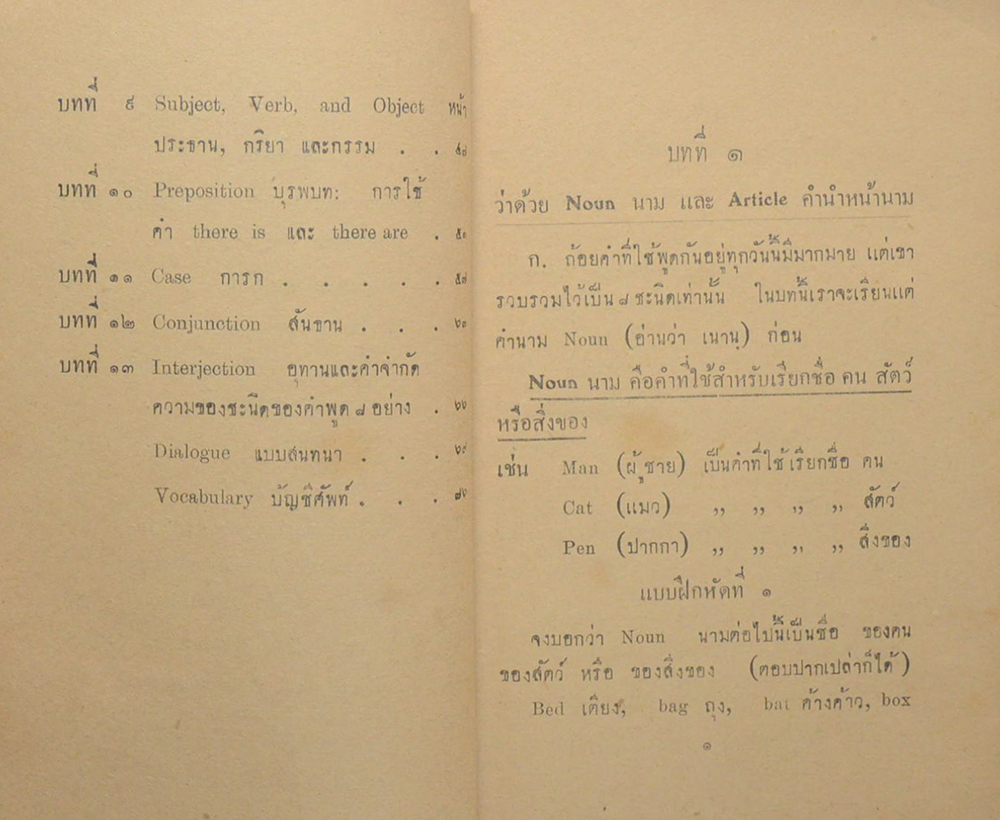 บทที่ ๙ Subject, Verb, and Object หน้า
ประธาน, กริยา และกรรม . .
บทที่ ๑๐ Preposition บุรพบท: การใช้
คำ there is และ there are .
บทที่ ๑๑ Case การก . . . . .
บทที่ ๑๒ Conjunction สันธาน . . .
บทที่ ๑๓ Interjection อุทานและคำจำกัด
ความของชะนิดของคำพูด ๘ อย่าง . ๖๖
Dialogue แบบสนทนา . . . ๖๙
Vocabulary บัญชีศัพท์ . . .
บทที่ ๑
ว่าด้วย Noun นาม และ Article คำนำหน้านาม
ก. ถ้อยคำที่ใช้พูดกันอยู่ทุกวันนี้มีมากมาย แต่เขา
รวบรวมไว้เป็น ๘ ชะนิดเท่านั้น ในบทนี้เราจะเรียนแต่
คำนาม Noun (อ่านว่า เนานฺ) ก่อน
Noun นาม คือคำที่ใช้สำหรับเรียกชื่อ คน สัตว์
หรือสิ่งของ
เช่น Man (ผู้ชาย) เป็นคำที่ใช้เรียกชื่อ คน
Cat (แมว) ,, ,, ,, ,, สัตว์
Pen (ปากกา) ,, ,, ,, ,, สิ่งของ
แบบฝึกหัดที่ ๑
จงบอกว่า Noun นามต่อไปนี้เป็นชื่อ ของคน
ของสัตว์ หรือ ของสิ่งของ (ตอบปากเปล่าก็ได้)
Bed เตียง, bag ถุง, bat ค้างค้าว, box
๑